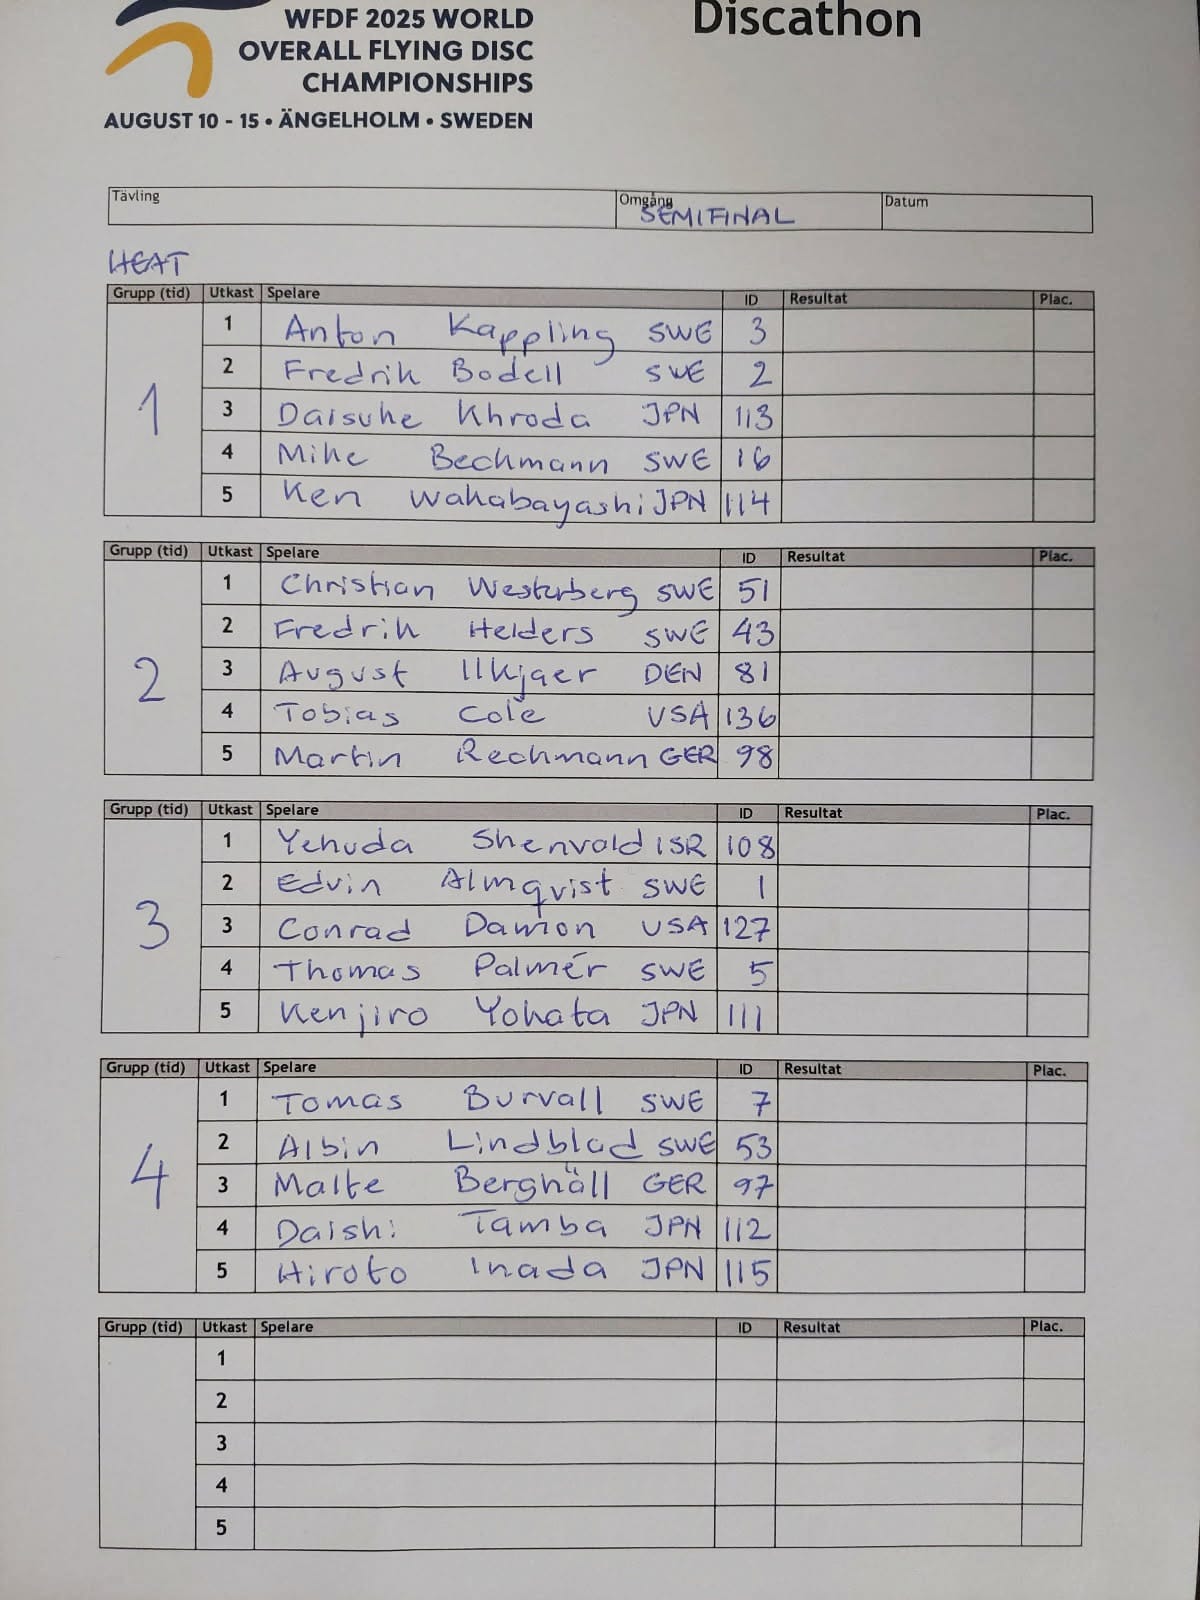 WFDF 2025 WORLD
OVERALL FLYING DISC
CHAMPIONSHIPS
AUGUST 10 - 15 • ÄNGELHOLM • SWEDEN
Discathon
Tävling Omgång SEMIFINAL Datum
HEAT
Grupp (tid) Utkast Spelare ID Resultat Plac.
1
1 Anton Kappling SWE 3
2 Fredrik Bodell SWE 2
3 Daisuke Khroda JPN 113
4 Mike Beckmann SWE 16
5 Ken Wakabayashi JPN 114
Grupp (tid) Utkast Spelare ID Resultat Plac.
2
1 Christian Westerberg SWE 51
2 Fredrik Helders SWE 43
3 August Ilkjaer DEN 81
4 Tobias Cole USA 136
5 Martin Rechmann GER 98
Grupp (tid) Utkast Spelare ID Resultat Plac.
3
1 Yehuda Shenvald ISR 108
2 Edvin Almqvist SWE 1
3 Conrad Damon USA 127
4 Thomas Palmér SWE 5
5 Kenjiro Yokata JPN 111
Grupp (tid) Utkast Spelare ID Resultat Plac.
4
1 Tomas Burvall SWE 7
2 Albin Lindblad SWE 53
3 Malte Berghäll GER 97
4 Daishi Tamba JPN 112
5 Hiroto Inada JPN 115
Grupp (tid) Utkast Spelare ID Resultat Plac.
1
2
3
4
5